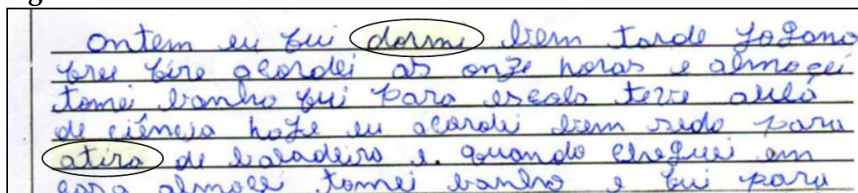 Ontem eu fui dormi bem tarde jogano
free fire acordei as onze horas e almoçei
tomei banho fui para escola teve aula
de ciência hoje eu acordei bem sedo para
atira de baladeira e. quando cheguei em
casa almocei tomei banho e fui para